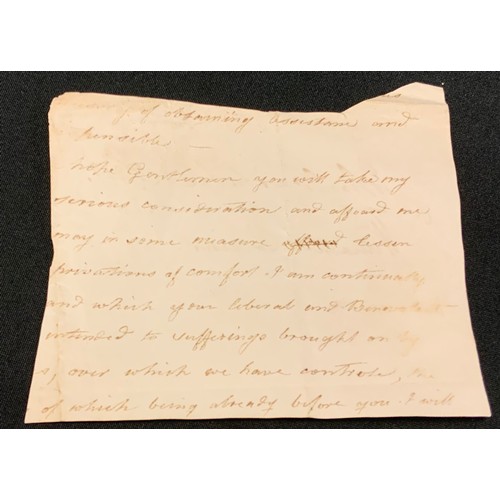 of obtaining assistance and
hensible —
hope Gentlemen you will take my
serious consideration and afford me
may in some measure afford lessen
privations of comfort I am continually
and which your liberal and
intended to sufferings brought on by
over which we have controle, the
of which being already before you I will